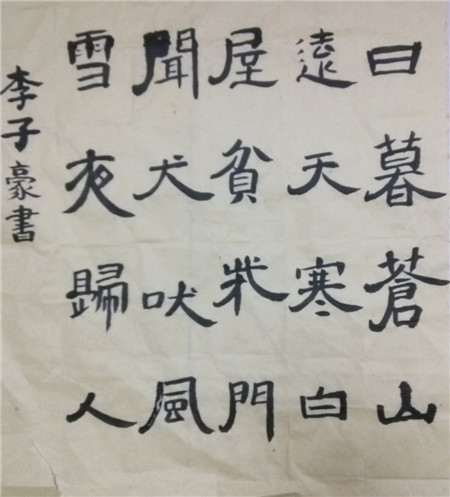 日暮蒼山
遠天寒白
屋貧柴門
聞犬吠風
雪夜歸人
李子豪書